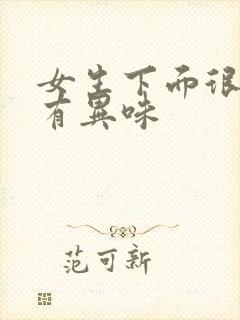 女生下面很
有異味
范可新